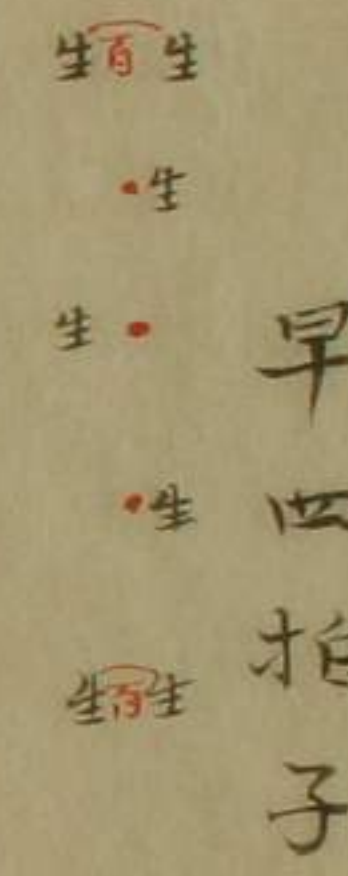 早四拍子
生百生
生
生
生
生百生